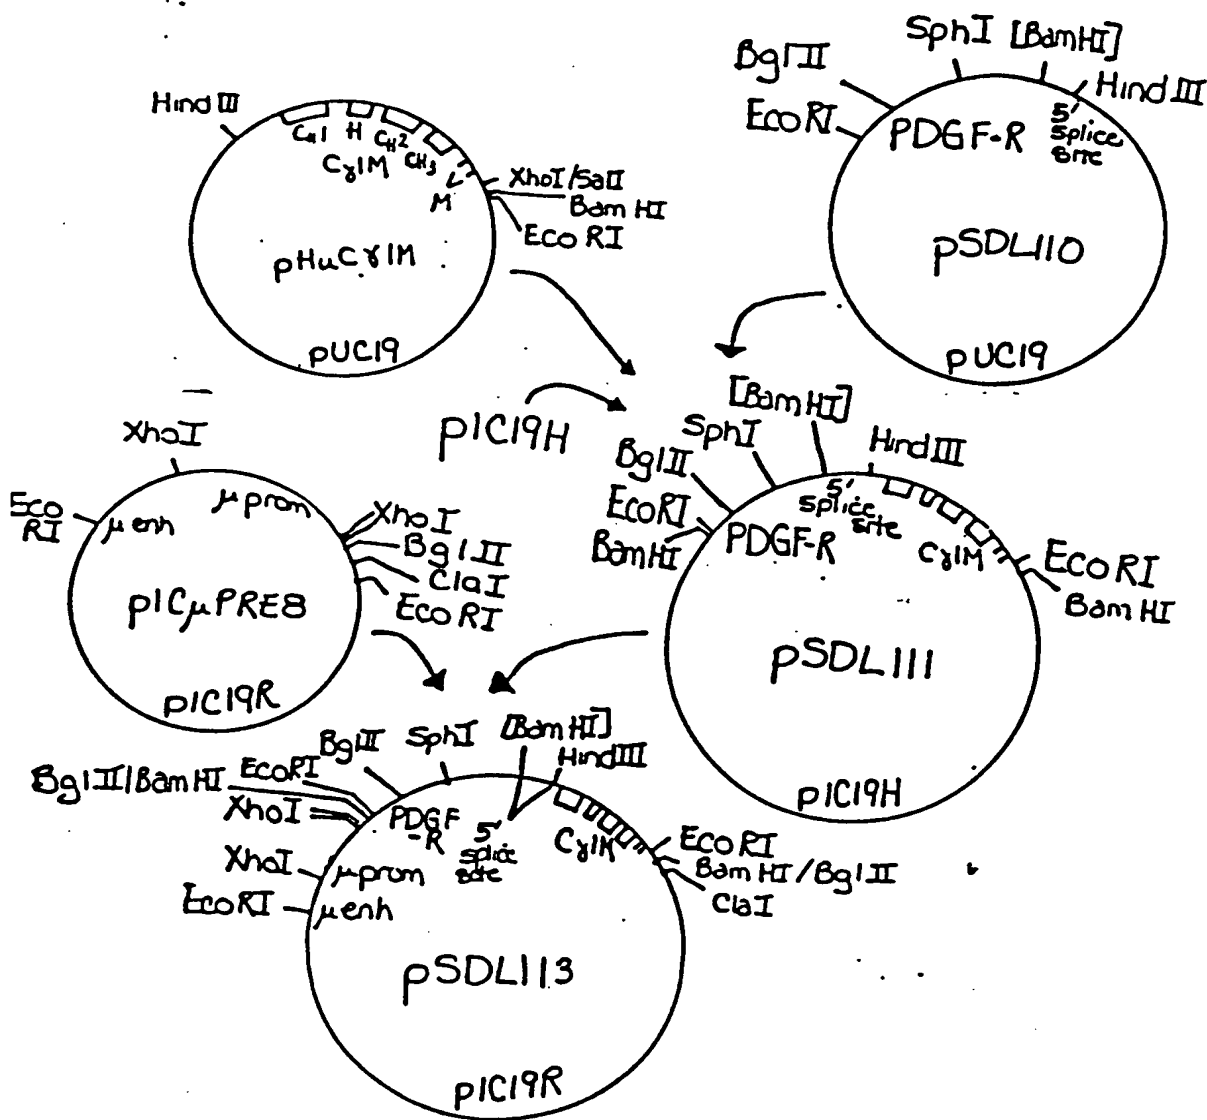 Hind III
CH1 H CH2 CH3
Cγ1M
M
XhoI/SalI
Bam HI
Eco RI
pHuCγ1M
pUC19
SphI [BamHI]
BglII
Hind III
EcoRI
PDGF-R
5'
Splice
Site
pSDL110
pUC19
pIC19H
XhoI
Eco
RI
μ enh
μ prom
XhoI
Bgl II
ClaI
EcoRI
pICμPRE8
pIC19R
[BamHI]
SphI
Hind III
BglII
EcoRI
BamHI
PDGF-R
5'
Splice
site
Cγ1M
EcoRI
Bam HI
pSDL111
pIC19H
BglII SphI [BamHI]
HindIII
EcoRI
BglII/BamHI
XhoI
XhoI
EcoRI
μ prom
μ enh
PDGF
-R
5'
splice
site
Cγ1M
EcoRI
Bam HI/BglII
ClaI
pSDL113
pIC19R